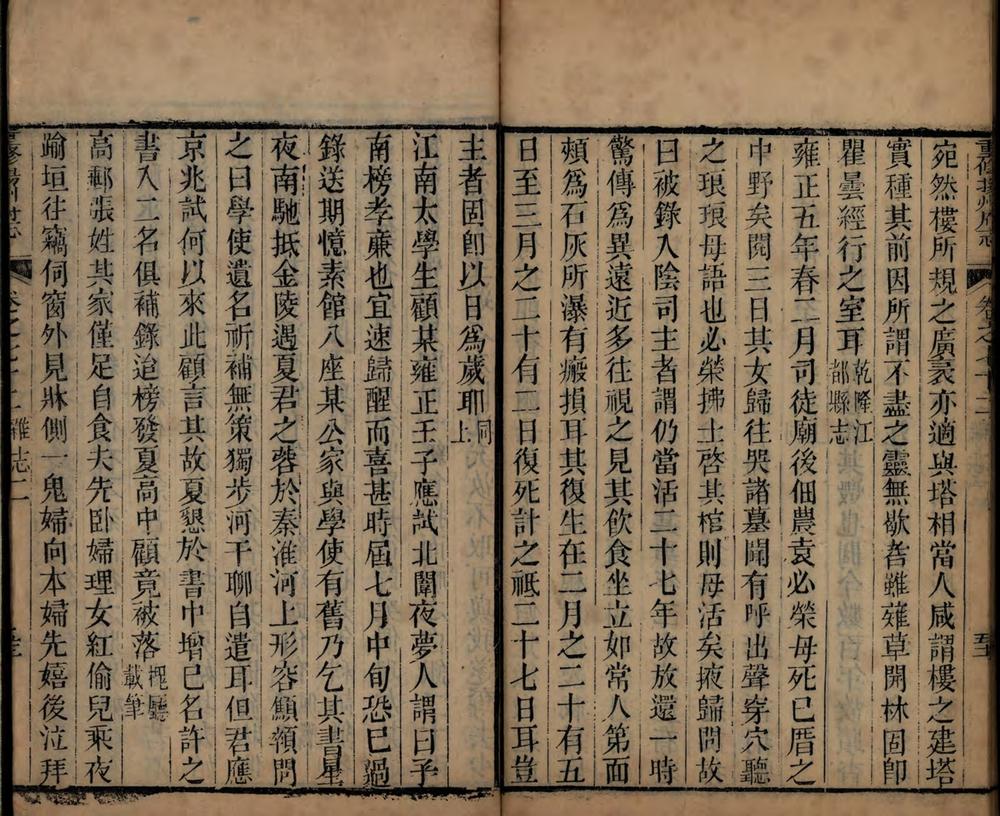 重修揚州府志
卷之七十二
宛然樓所規之廣袤亦適與塔相當人咸謂樓之建塔
實種其前因所謂不盡之靈無歇者雖薙草開林固卽
瞿曇經行之室耳乾隆江都縣志
雍正五年春二月司徒廟後佃農袁必榮母死已厝之
中野矣閱三日其女歸往哭諸墓聞有呼出聲穿穴聽
之琅琅母語也必榮拂土啓其棺則母活矣掖歸問故
曰被錄入陰司主者謂仍當活二十七年故放還一時
驚傳爲異遠近多往視之見其飲食坐立如常人第面
頰爲石灰所瀑有瘢損耳其復生在二月之二十有五
日至三月之二十有二日復死計之祗二十七日耳豈
主者固卽以日爲歲耶同上
江南太學生顧某雍正壬子應試北闈夜夢人謂曰子
南榜孝廉也宜速歸醒而喜甚時屆七月中旬恐已過
錄送期憶素館八座某公家與學使有舊乃乞其書星
夜南馳抵金陵遇夏君之蓉於秦淮河上形容顦顇問
之曰學使遺名祈補無策獨步河干聊自遣耳但君應
京兆試何以來此顧言其故夏懇於書中增已名許之
書入二名俱補錄迨榜發夏高中顧竟被落槐廳載筆
高郵張姓其家僅足自食夫先卧婦理女紅偷兒乘夜
踰垣往竊伺窗外見牀側一鬼婦向本婦先嬉後泣拜
卷之七十二 雜志二